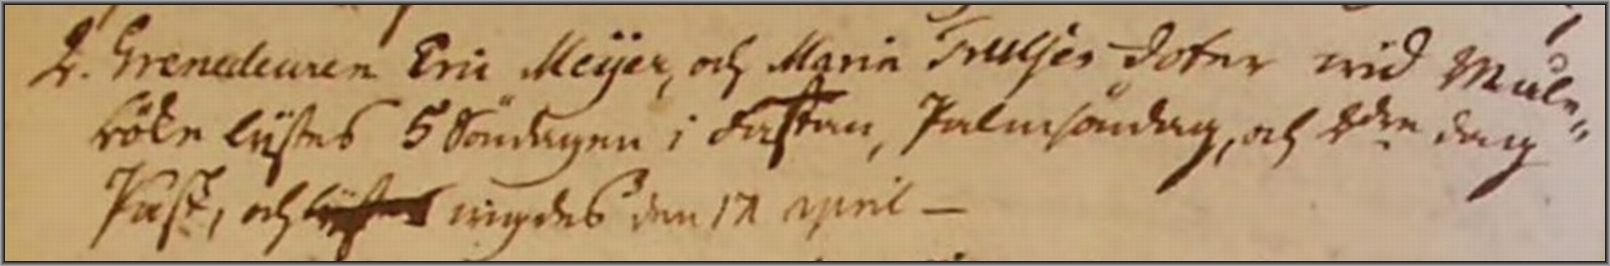 2. Grenedeuren Eric Meÿer, och Maria Trulsses doter wid Mule„
röke lÿstes 5 Söndagen i Fastan, Palmsöndag, och 2dre dag
Påsk, och wigdes den 17 April —